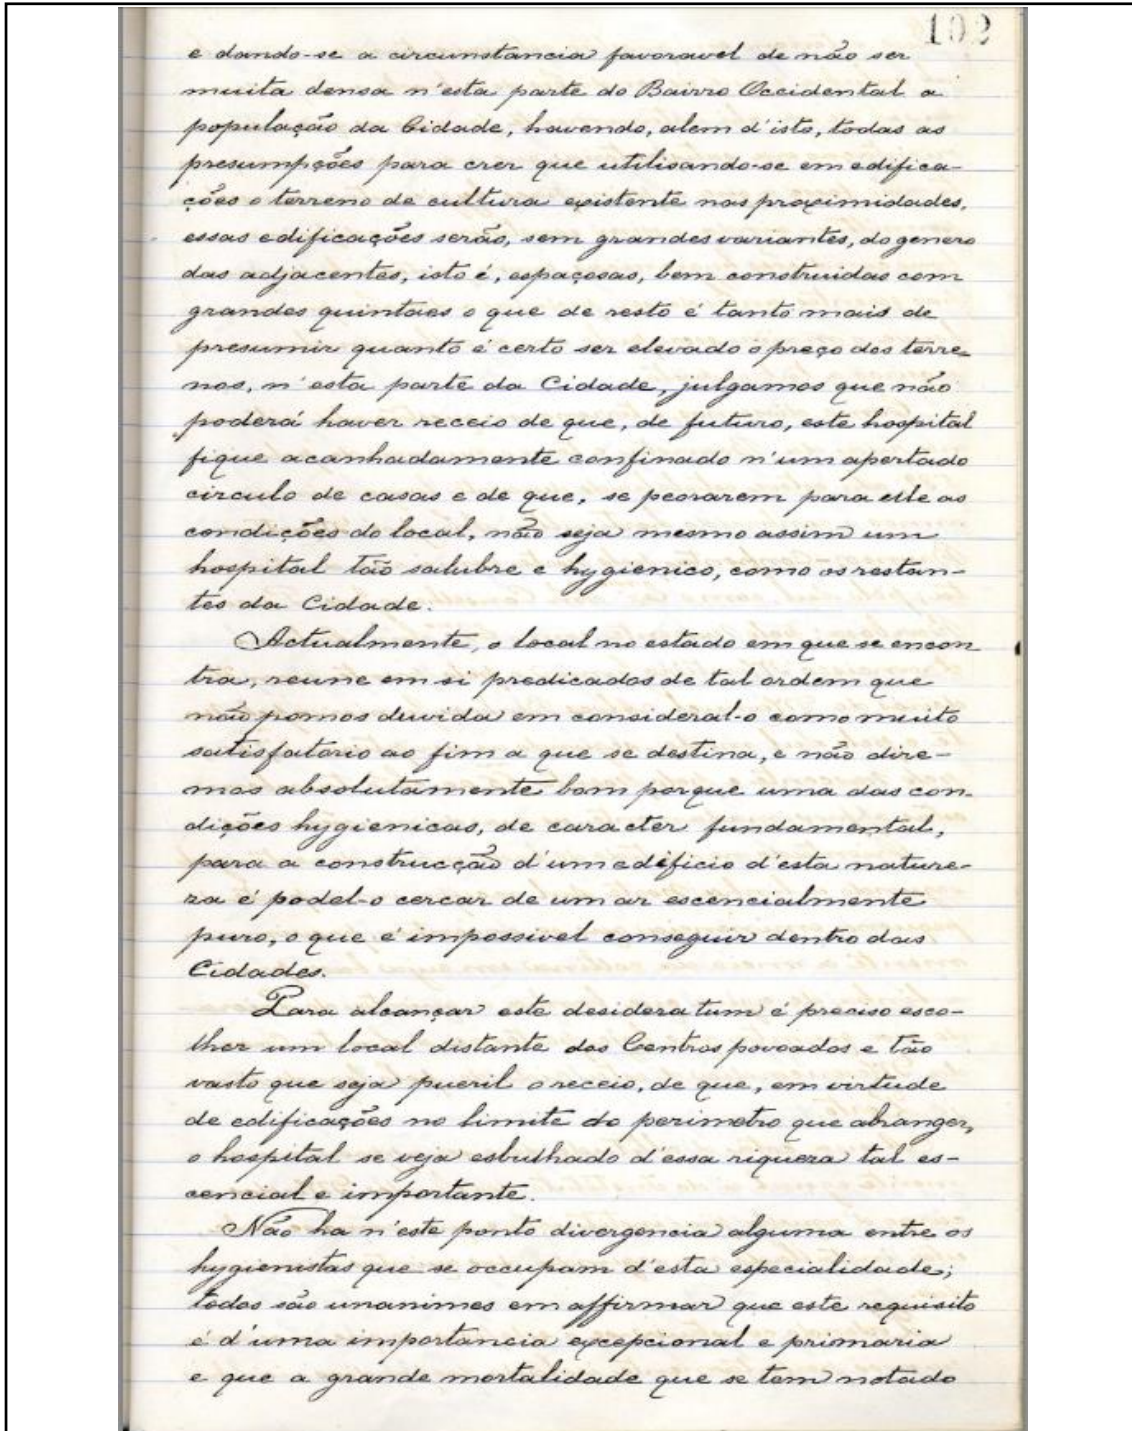 102
e dando-se a circumstancia favoravel de não ser
muita densa n'esta parte do Bairro Occidental a
população da Cidade, havendo, alem d'isto, todas as
presumpções para crer que utilisando-se em edifica-
ções o terreno de cultura existente nas proximidades,
essas edificações serão, sem grandes variantes, do genero
das adjacentes, isto é, espaçosas, bem construidas com
grandes quintaes o que de resto é tanto mais de
presumir quanto é certo ser elevado o preço dos terre-
nos, n'esta parte da Cidade, julgamos que não
poderá haver receio de que, de futuro, este hospital
fique acanhadamente confinado n'um apertado
circulo de casas e de que, se peorarem para elle as
condições do local, não seja mesmo assim um
hospital tão salubre e hygienico, como os restan-
tes da Cidade.
Actualmente, o local no estado em que se encon
tra, reune em si predicados de tal ordem que
não pomos duvida em consideral-o como muito
satisfatório ao fim a que se destina, e não dire-
mos absolutamente bom porque uma das con-
dições hygienicas, de caracter fundamental,
para a construcção d'um edificio d'esta nature-
za é podel-o cercar de um ar escencialmente
puro, o que é impossivel conseguir dentro das
Cidades.
Para alcançar este desideratum é preciso esco-
lher um local distante dos Centros povoados e tão
vasto que seja pueril o receio, de que, em virtude
de edificações no limite do perimetro que abranger,
o hospital se veja esbulhado d'essa riqueza tal es-
cencial e importante.
Não ha n'este ponto divergencia alguma entre os
hygienistas que se occupam d'esta especialidade;
todos são unanimes em affirmar que este requisito
é d'uma importancia excepcional e primaria
e que a grande mortalidade que se tem notado